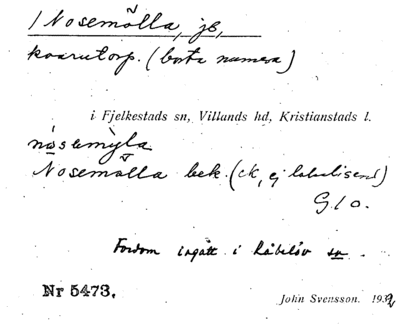 1 Nosemölla, jb,
kvarntorp. (borta numera)
i Fjelkestads sn, Villands hd, Kristianstads l.
nosemyla
Nosemölla bek. (ck, ej lokaliserad)
G 10.
Fordom ingått i Råbelöv sn.
Nr 5473.
John Svensson. 1932